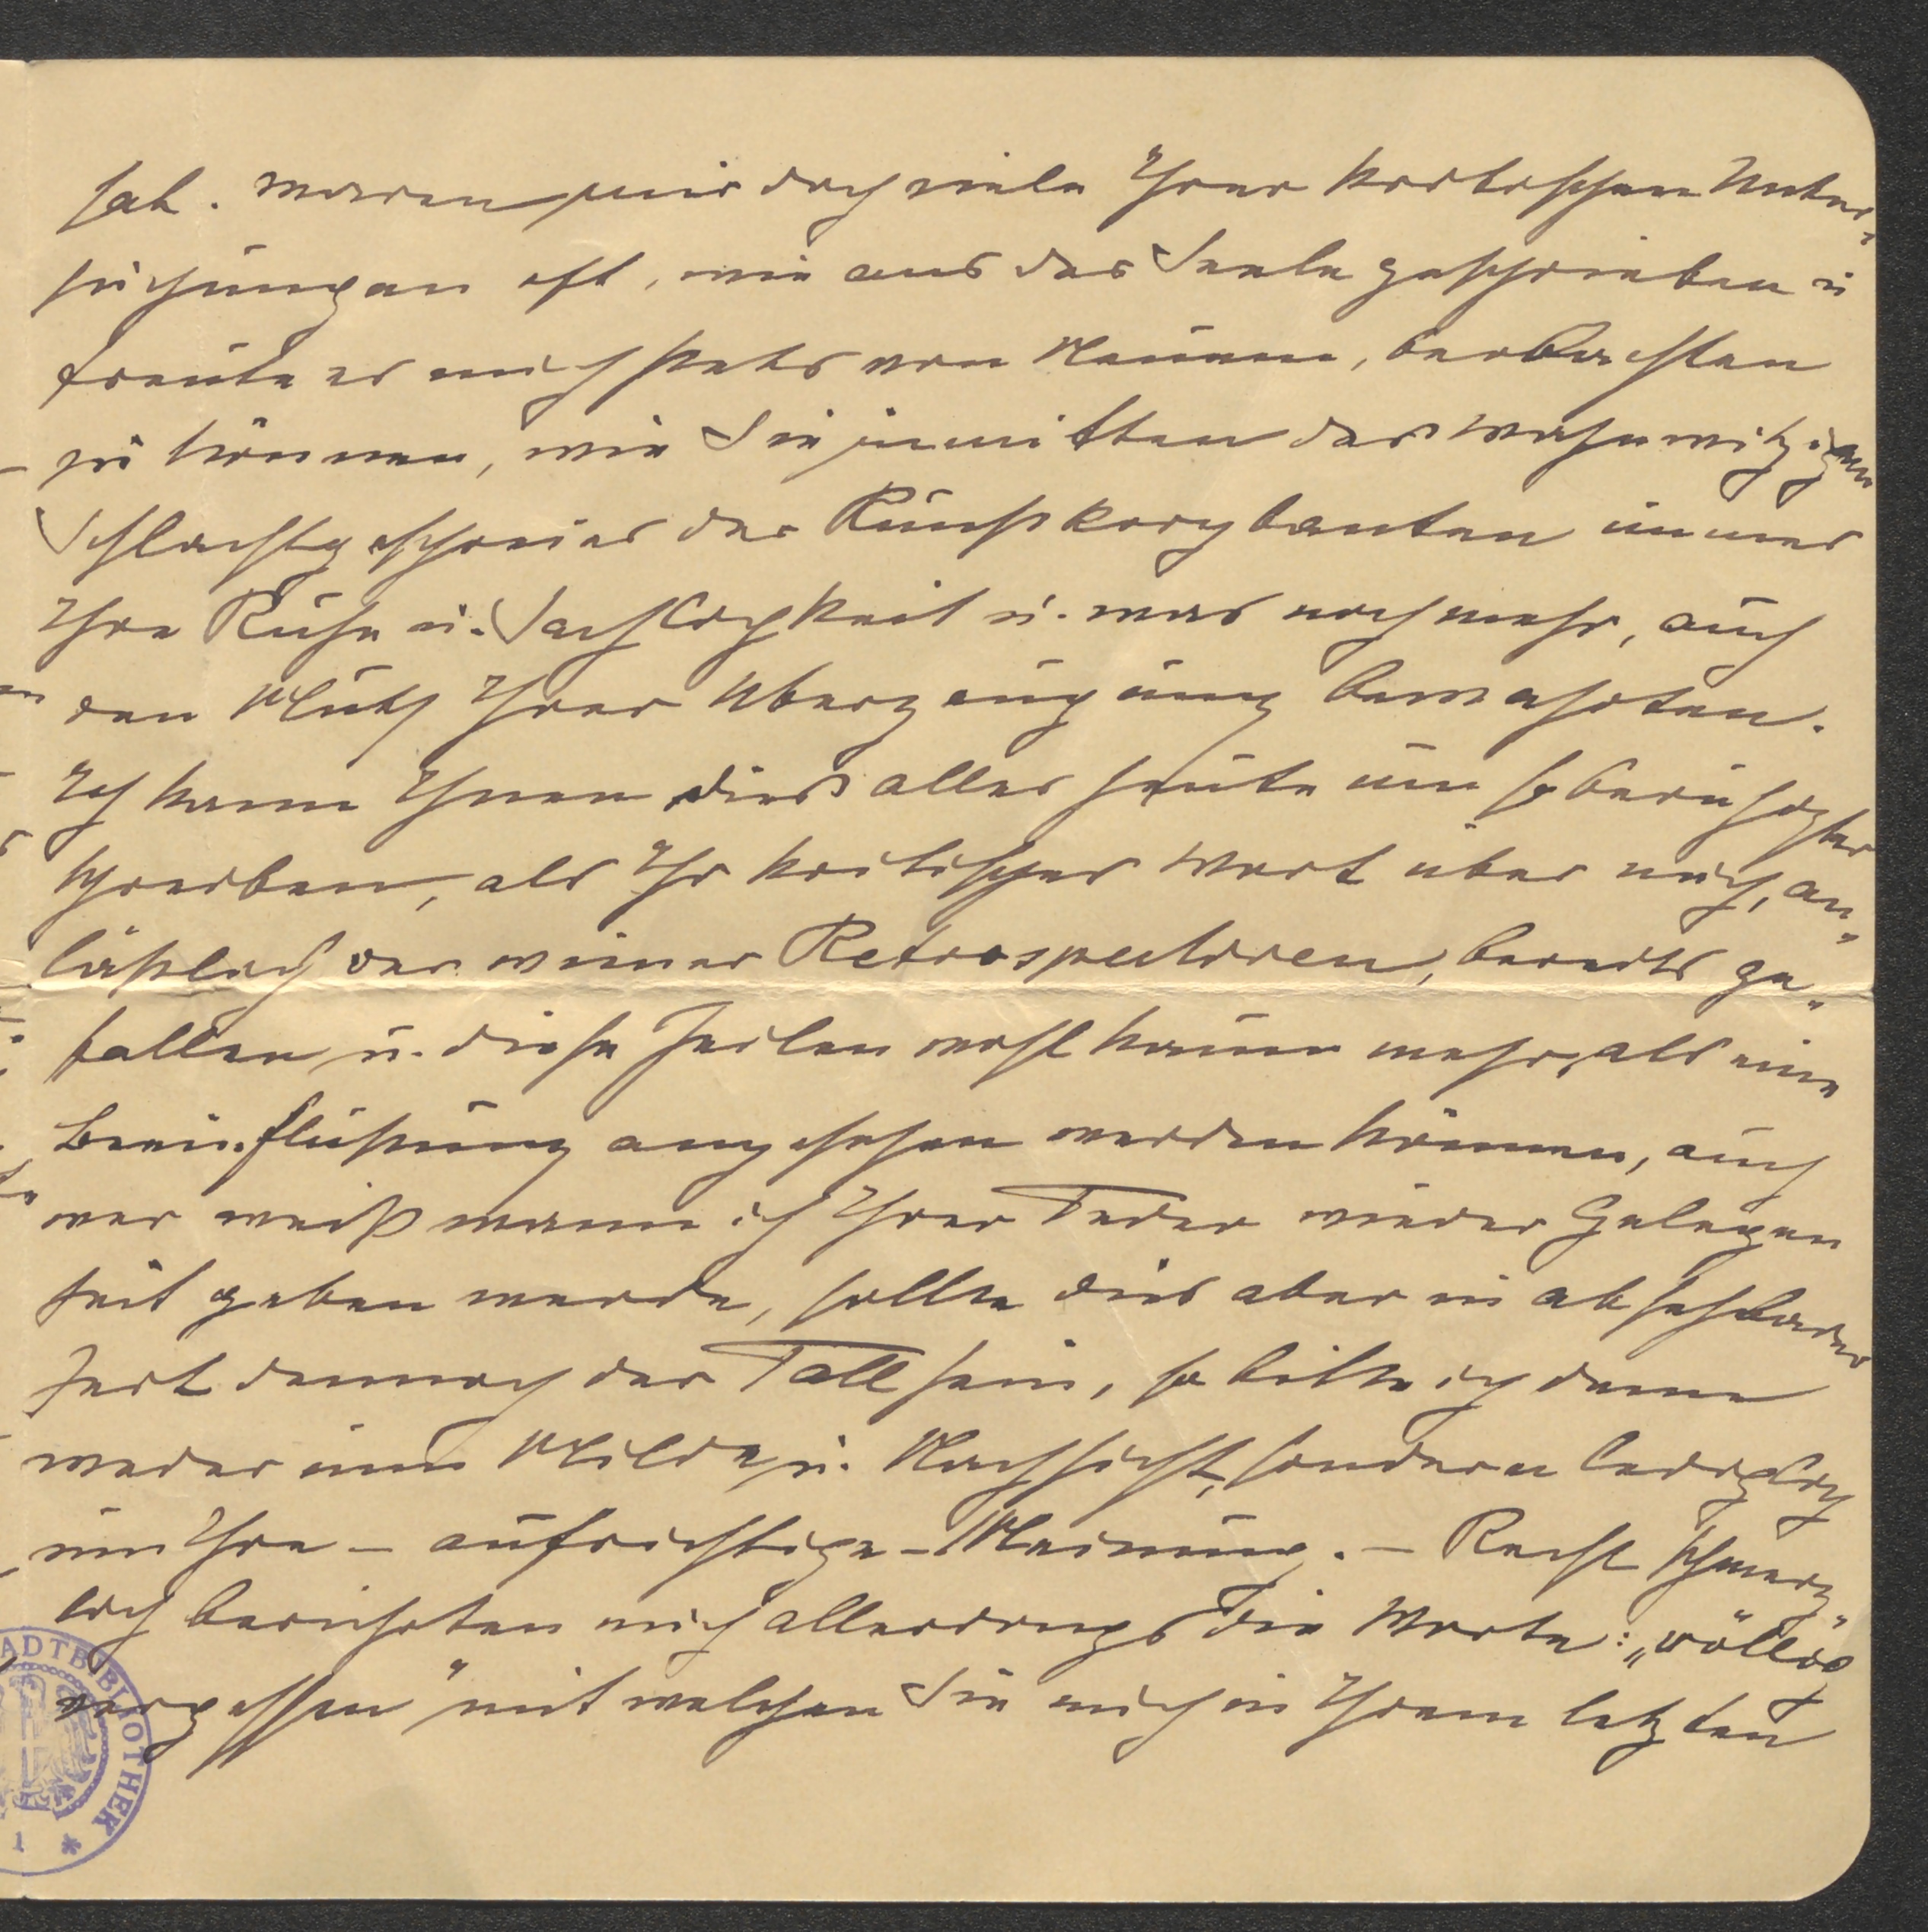 hat. Waren mir doch viele Ihrer kritischen Unter-
suchungen oft, wie aus der Seele geschrieben u
freute es mich stets von Neuem, beobachten
zu können, wie Sie inmitten des wahnwitzigen
Schlachtgeschreies der Kunstkorybanten immer
Ihre Ruhe u. Sachlichkeit u. was noch mehr, auch
den Muth Ihrer Überzeugung bewahrten.
Ich kann Ihnen dies alles heute um so beruhigter
schreiben, als Ihr kritisches Wort über mich, an-
läßlich der wiener Retrospectiven, bereits ge-
fallen u. diese Zeilen wohl kaum mehr, als eine
Beeinflußung angesehen werden können, auch
wer weiß wann ich Ihrer Feder wieder Gelegen
heit geben werde, sollte dies aber in absehbarer
Zeit dennoch der Fall sein, so bitte ich denn
weder um Milde u. Nachsicht, sondern lediglich
um Ihre – aufrichtige – Meinung. – Recht schmerz-
lich berührten mich allerdings die Worte: „völlig
vergessen" mit welchen Sie mich in Ihrem letzten
ADTBIBLIOTHEK *
1